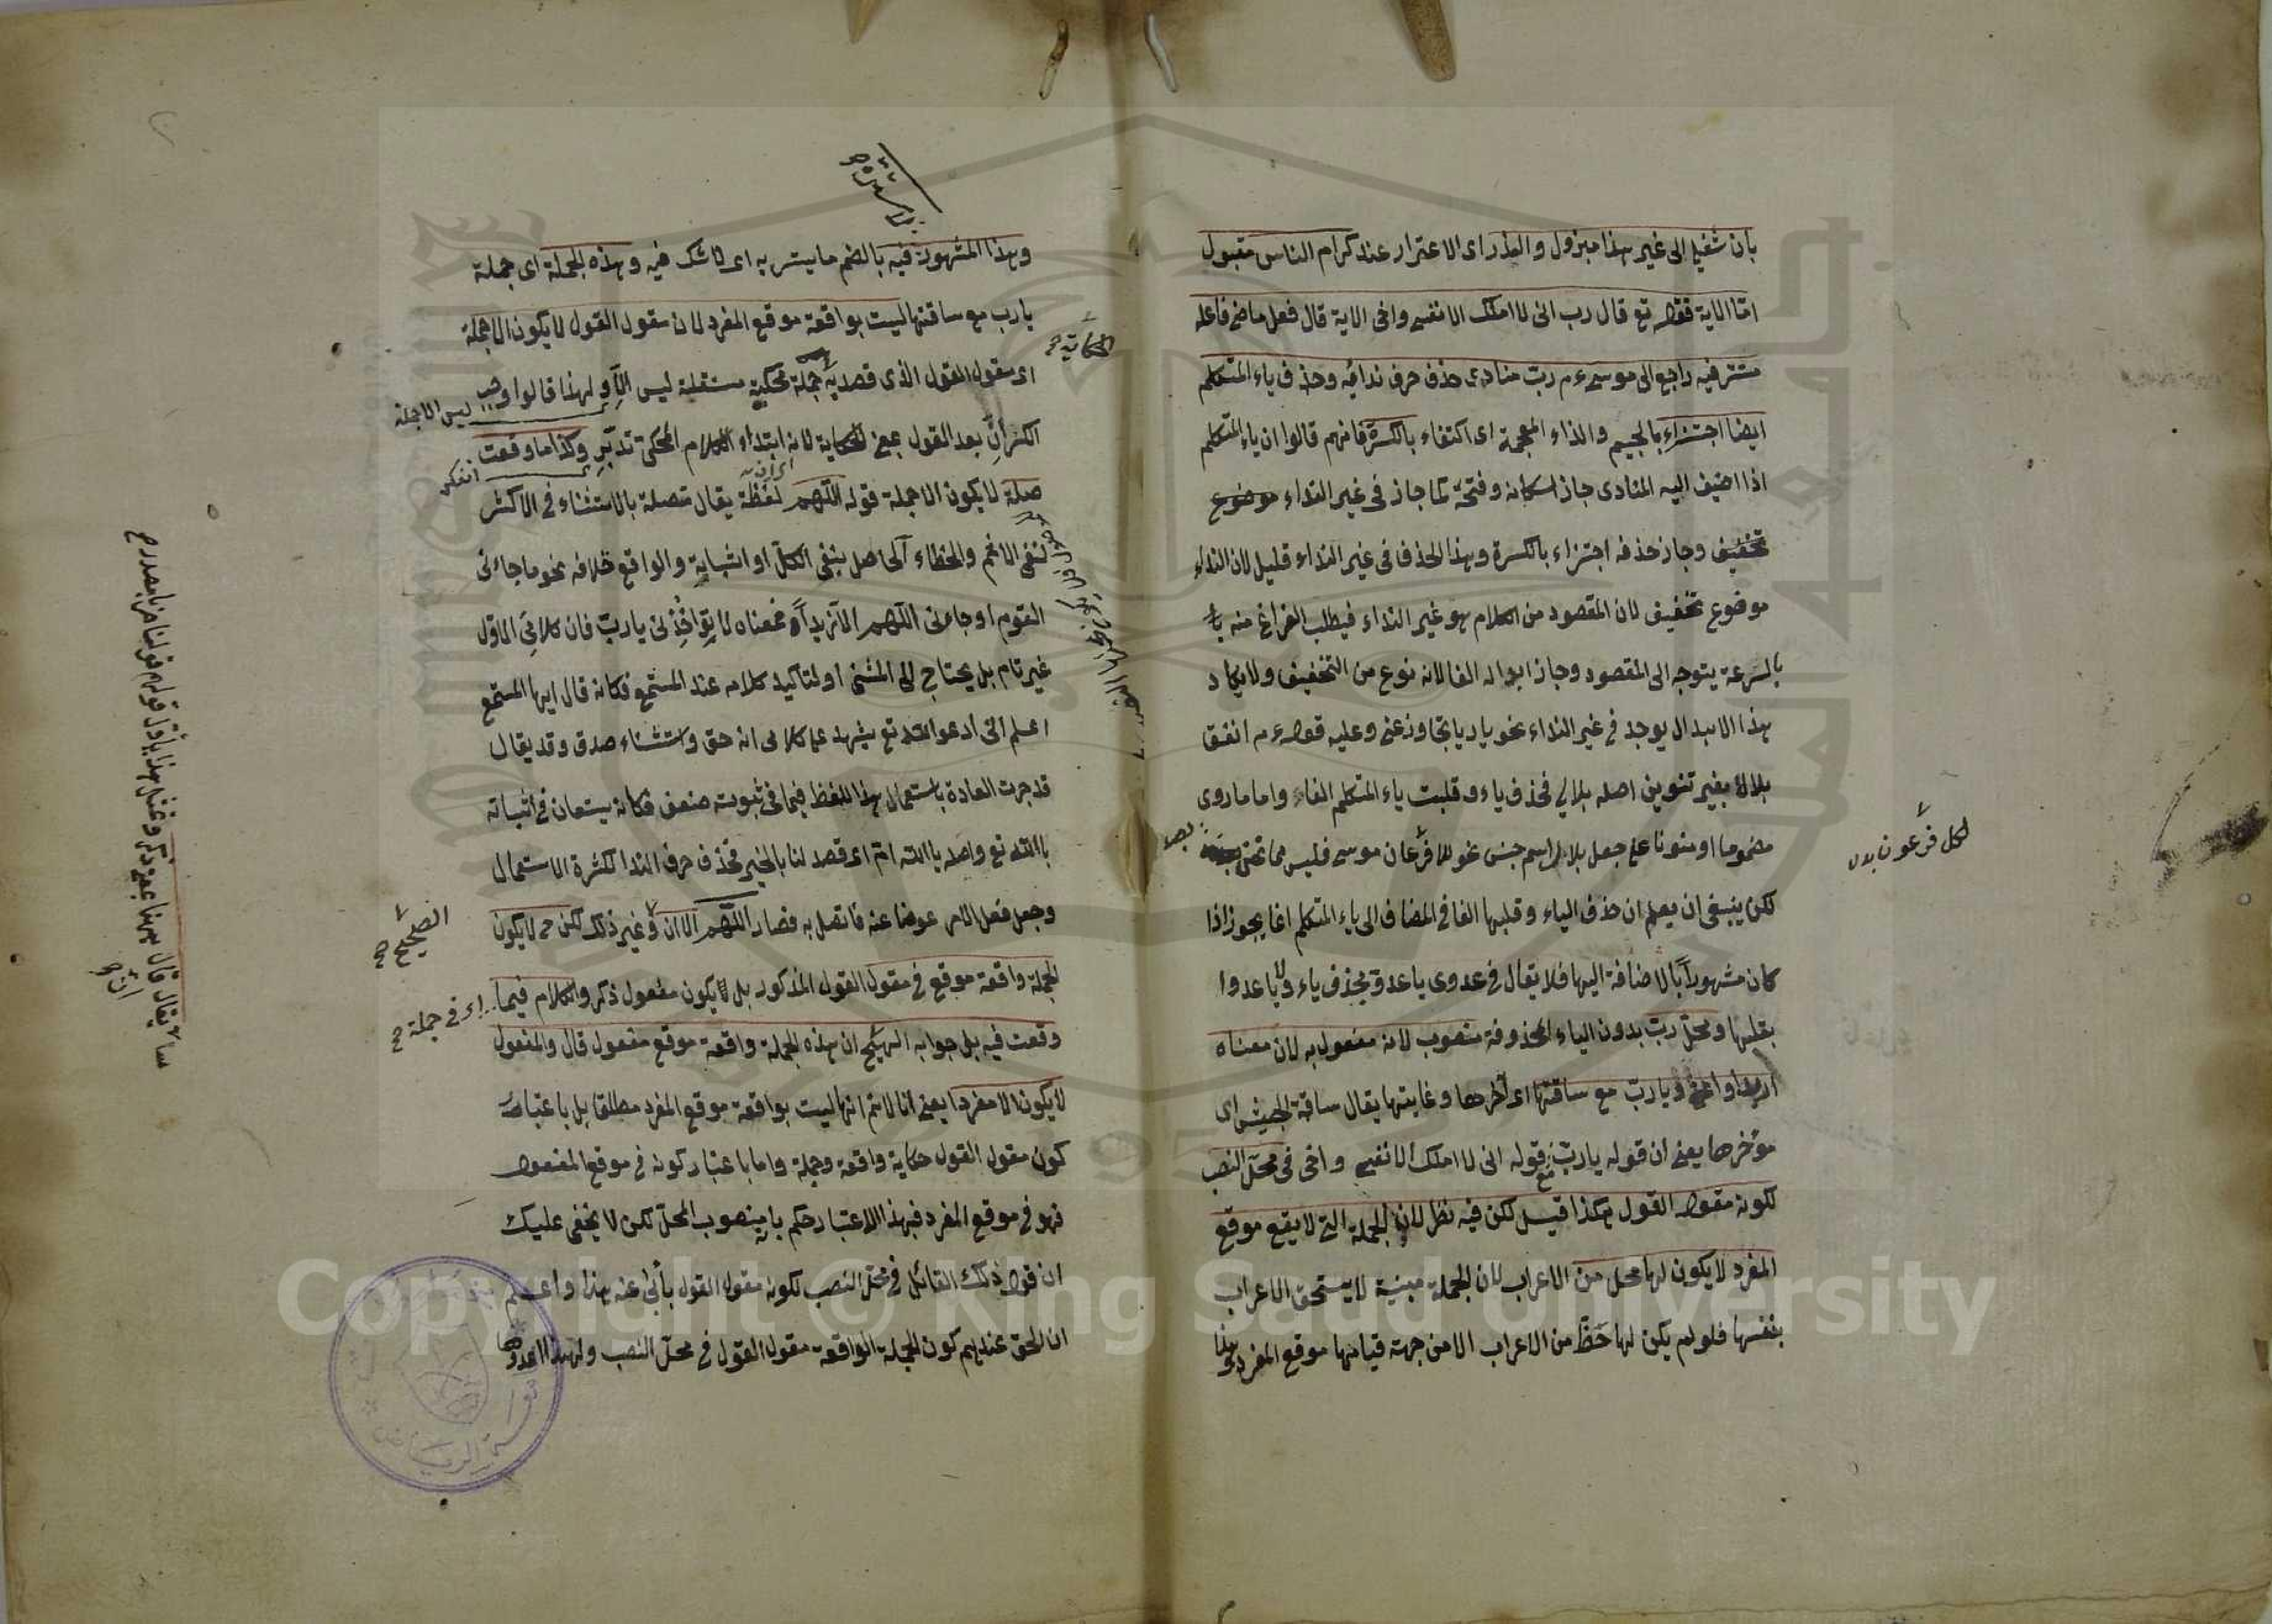 بان شغلي الى غير هذا مبزول والعذر اى الاعتزار عند كرام الناس مقبول
امّا الاية فقوله تع قال رب انى لا املك الا نفسى واخى الاية قال فعل ماض فاعله
مستتر فيه راجع الى موسى ءم ربّ منادى حذف حرف ندائه وحذف ياء المتكلم
ايضا اجتزاء بالجيم والذاء المعجمة اى اكتفاء بالكسرة فانهم قالوا ان ياء المتكلم
اذا اضيف اليه المنادى جاز اسكانه وفتحه كما جاز فى غير النداء موضوع
تخفيف وجاز حذفه اجتزاء بالكسرة وهذا الحذف فى غير النداء قليل لان النداء
موضوع تخفيف لان المقصود من الكلام هو غير النداء فيطلب الفراغ منه
بالسرعة يتوجه الى المقصود وجاز ابداله الفا لانه نوع من التخفيف ولا يكاد
هذا الابدال يوجد فى غير النداء نحو يا ربا تجاوز عنى وعليه قوله ءم انفق
بلالا بغير تنوين اصله بلالي فحذف ياء وقلبت ياء المتكلم الفاء واما ما روى
مضموما او منونا على جعل بلال اسم جنس نحو فرعان موسى فليس مما نحن
لكن ينبغى ان يعلم ان حذف الياء وقلبها الفا فى المضاف الى ياء المتكلم انما يجوز اذا
كان مشهورا بالاضافة اليها فلا يقال فى عدوى يا عدو بحذف ياء ولا يا عدوا
بقلبها ومحلّ ربّ بدون الياء المحذوفة منصوب لانه مفعول به لان معناه
اريد او اعنى ويا ربّ مع ساقتها اى آخرها وغايتها يقال ساقة الجيش اى
مؤخرها يعنى ان قوله يا ربّ مع قوله انى لا املك الا نفسى واخى فى محلّ النصب
لكونه مقول القول هكذا قيل لكن فيه نظر لان الجملة التى لا يقع موقع
المفرد لا يكون لها محل من الاعراب لان الجملة مبنية لا يستحق الاعراب
بنفسها فلو لم يكن لها حَظّ من الاعراب الا من جهة قيامها موقع المفرد وهنا
لكل فرعون بدل
وهذا المشهور فيه بالضم ما يستر به اى لا شك فيه وهذه الجملة اى جملة
يا رب مع ساقتها ليست بواقعة موقع المفرد لان مقول القول لا يكون الا جملة
اى مقول القول الذى قصد به جملة محكية مستقلة ليس الا ولهذا قالوا وجب
ليس الا جملة
الكسر انّ بعد القول بمعنى الحكاية لانه ابتداء الكلام المحكى تدبّر وكذا ما وقعت
صلة لا يكون الا جملة قوله اللّهم لفظة يقال متصلة بالاستثناء فى الاكثر
لنفى الاغم والخطاء الحاصل بنفى الكلّ او اثباته والواقع خلافه نحو ما جاءنى
القوم او جاءنى اللّهم الا زيدا فمعناه لا تؤاخذنى يا ربّ فان كلامى الاول
غير تام بل يحتاج الى المثنى او لتاكيد كلامه عند المستمع فكانه قال ايها المستمع
اعلم انى ادعو الله تع يشهد على كلامى انه حق واستثناء صدق وقد يقال
قد جرت العادة باستعمال هذا اللفظ فيما فى ثبوته ضعف فكانه يستعان فى اثباته
بالله تع واصله يا الله امّ اى قصد لنا بالخير فحذف حرف الندا لكثرة الاستعمال
وجعل فعل الامر عوضا عنه فاتصل به فصار اللّهم الا ان وغير ذلك لكن ح لا يكون
الجملة واقعة موقع فى مقول القول المذكور بل لا يكون مفعول ذكر والكلام فيما
وقعت فيه بل جوابه الصحيح ان هذه الجملة واقعة موقع مفعول قال والمفعول
لا يكون الا مفردا يعنى انا لا نم انها ليست بواقعة موقع المفرد مطلقا بل باعتبار
كون مقول القول حكاية واقعة وجملة واما باعتبار كونه فى موقع المفعول
فهو فى موقع المفرد فبهذا الاعتبار حكم بانه منصوب المحلّ لكن لا يخفى عليك
ان قول ذلك القائل فى محلّ النصب لكونه مقول القول يأبى عنه هذا واعلم
ان الحق عندهم كون الجملة الواقعة مقول القول فى محلّ النصب ولهذا عدوها
الحكاية صح
اى فى جملة صح
Copyright © King Saud University